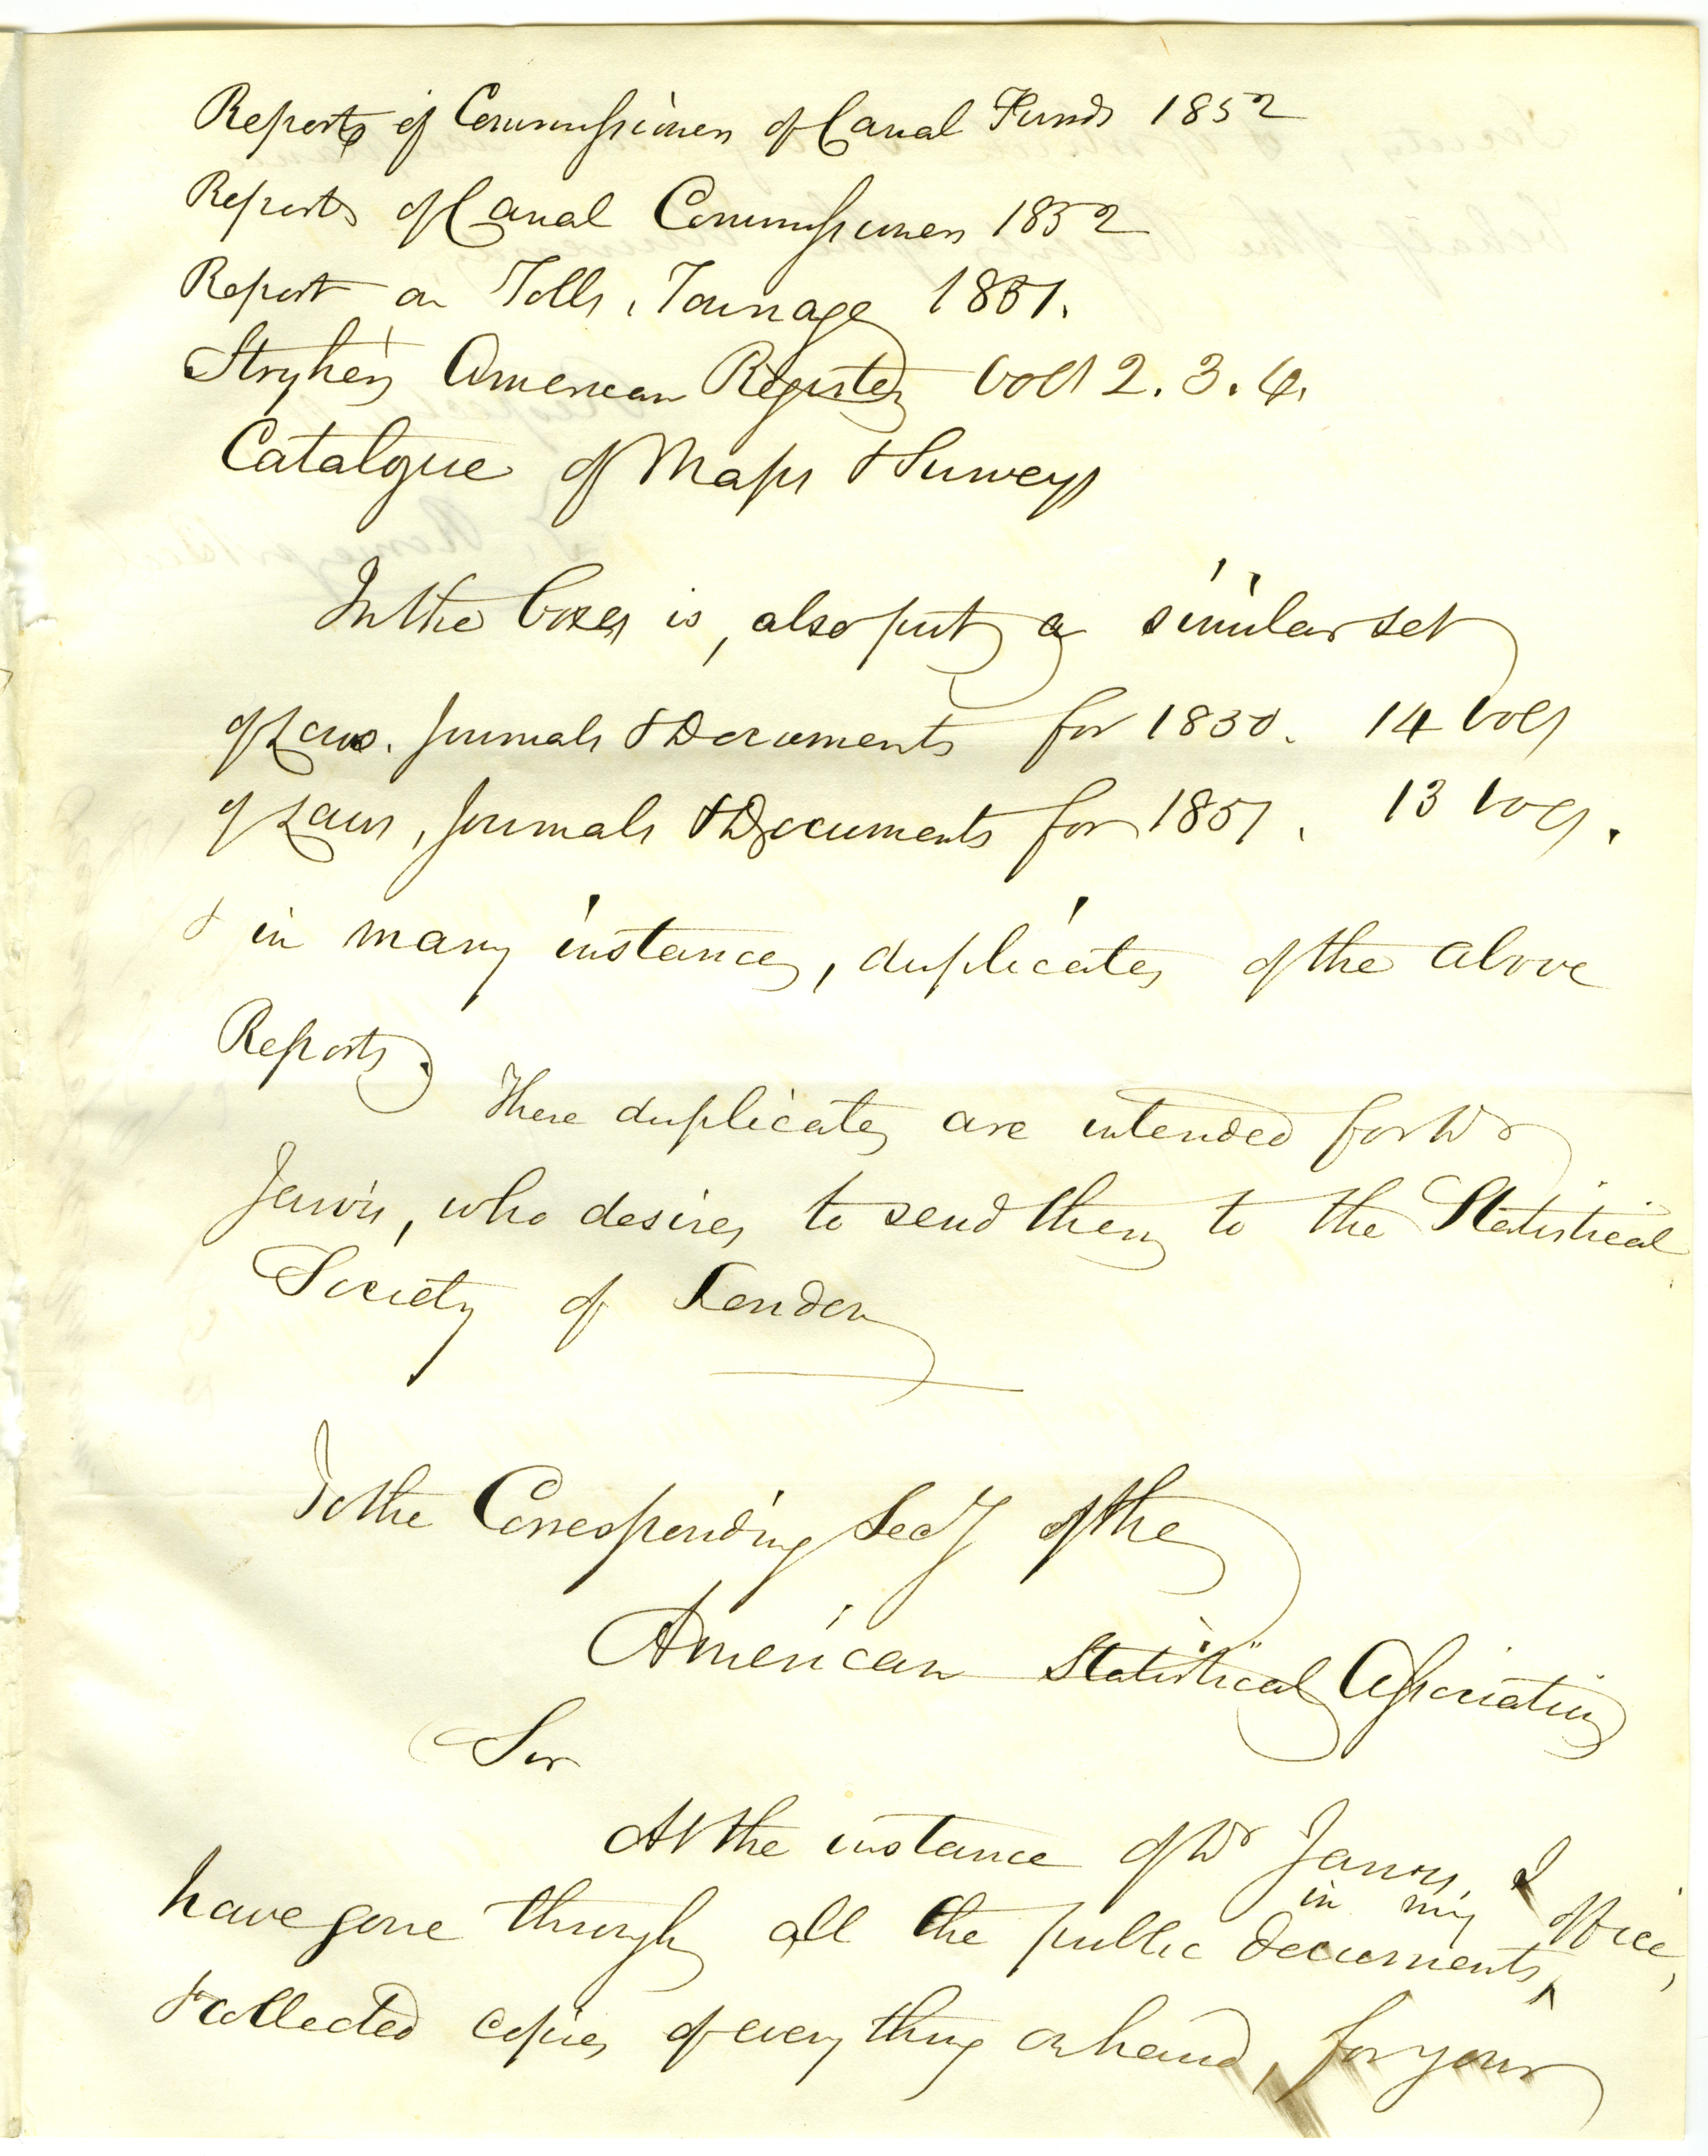 Reports of Commissioners of Canal Funds 1852
Reports of Canal Commissioners 1852
Report on Tolls, Tonnage 1851.
Stryker's American Register Vols 2. 3. 4.
Catalogue of Maps & Surveys
In the boxes is, also put a similar set
of Laws. Journals & Documents for 1850. 14 vols
of Laws, Journals & Documents for 1851, 13 vols.
& in many instances, duplicates of the above
Reports.
These duplicates are intended for Dr
Jarvis, who desires to send them to the Statistical
Society of London
To the Corresponding Secy of the
American Statistical Association
Sir
At the instance of Dr Jarvis, I
have gone through all the public documents ^ in my office,
& collected copies of every thing on hand, for your